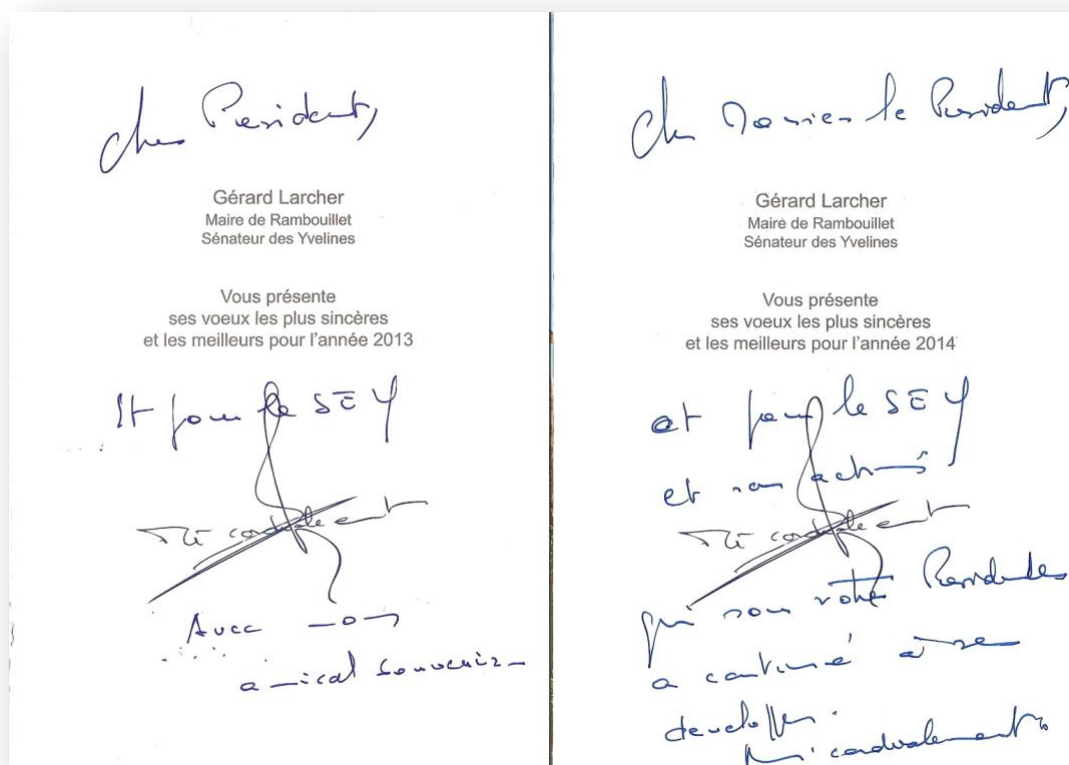 Cher President,
Gérard Larcher
Maire de Rambouillet
Sénateur des Yvelines
Vous présente
ses voeux les plus sincères
et les meilleurs pour l'année 2013
Et pour le SEY
Très cordialement
Avec mon
amical souvenir
Cher Monsieur le President,
Gérard Larcher
Maire de Rambouillet
Sénateur des Yvelines
Vous présente
ses voeux les plus sincères
et les meilleurs pour l'année 2014
et pour le SEY
et son
Très cordialement
qui sous votre Présidence
a continué à se
developper.
cordialement